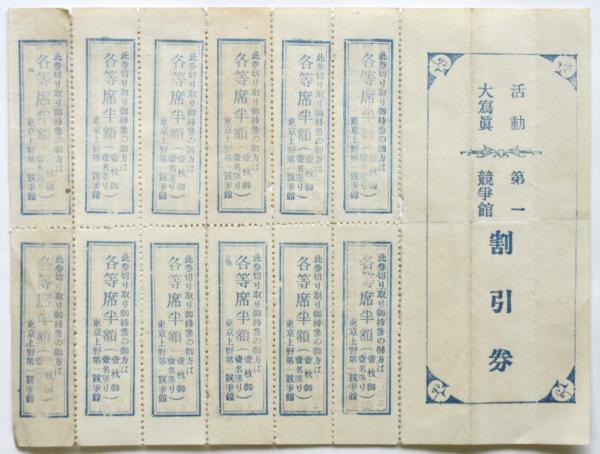 活動
大寫眞
第一
競爭館
割引券
此券切り取り御持參の御方は
各等席半額(壹枚御壹名限り)
東京上野第一競爭館
此券切り取り御持參の御方は
各等席半額(壹枚御壹名限り)
東京上野第一競爭館
此券切り取り御持參の御方は
各等席半額(壹枚御壹名限り)
東京上野第一競爭館
此券切り取り御持參の御方は
各等席半額(壹枚御壹名限り)
東京上野第一競爭館
此券切り取り御持參の御方は
各等席半額(壹枚御壹名限り)
東京上野第一競爭館
此券切り取り御持參の御方は
各等席半額(壹枚御壹名限り)
東京上野第一競爭館
此券切り取り御持參の御方は
各等席半額(壹枚御壹名限り)
東京上野第一競爭館
此券切り取り御持參の御方は
各等席半額(壹枚御壹名限り)
東京上野第一競爭館
此券切り取り御持參の御方は
各等席半額(壹枚御壹名限り)
東京上野第一競爭館
此券切り取り御持參の御方は
各等席半額(壹枚御壹名限り)
東京上野第一競爭館
此券切り取り御持參の御方は
各等席半額(壹枚御壹名限り)
東京上野第一競爭館
此券切り取り御持參の御方は
各等席半額(壹枚御壹名限り)
東京上野第一競爭館